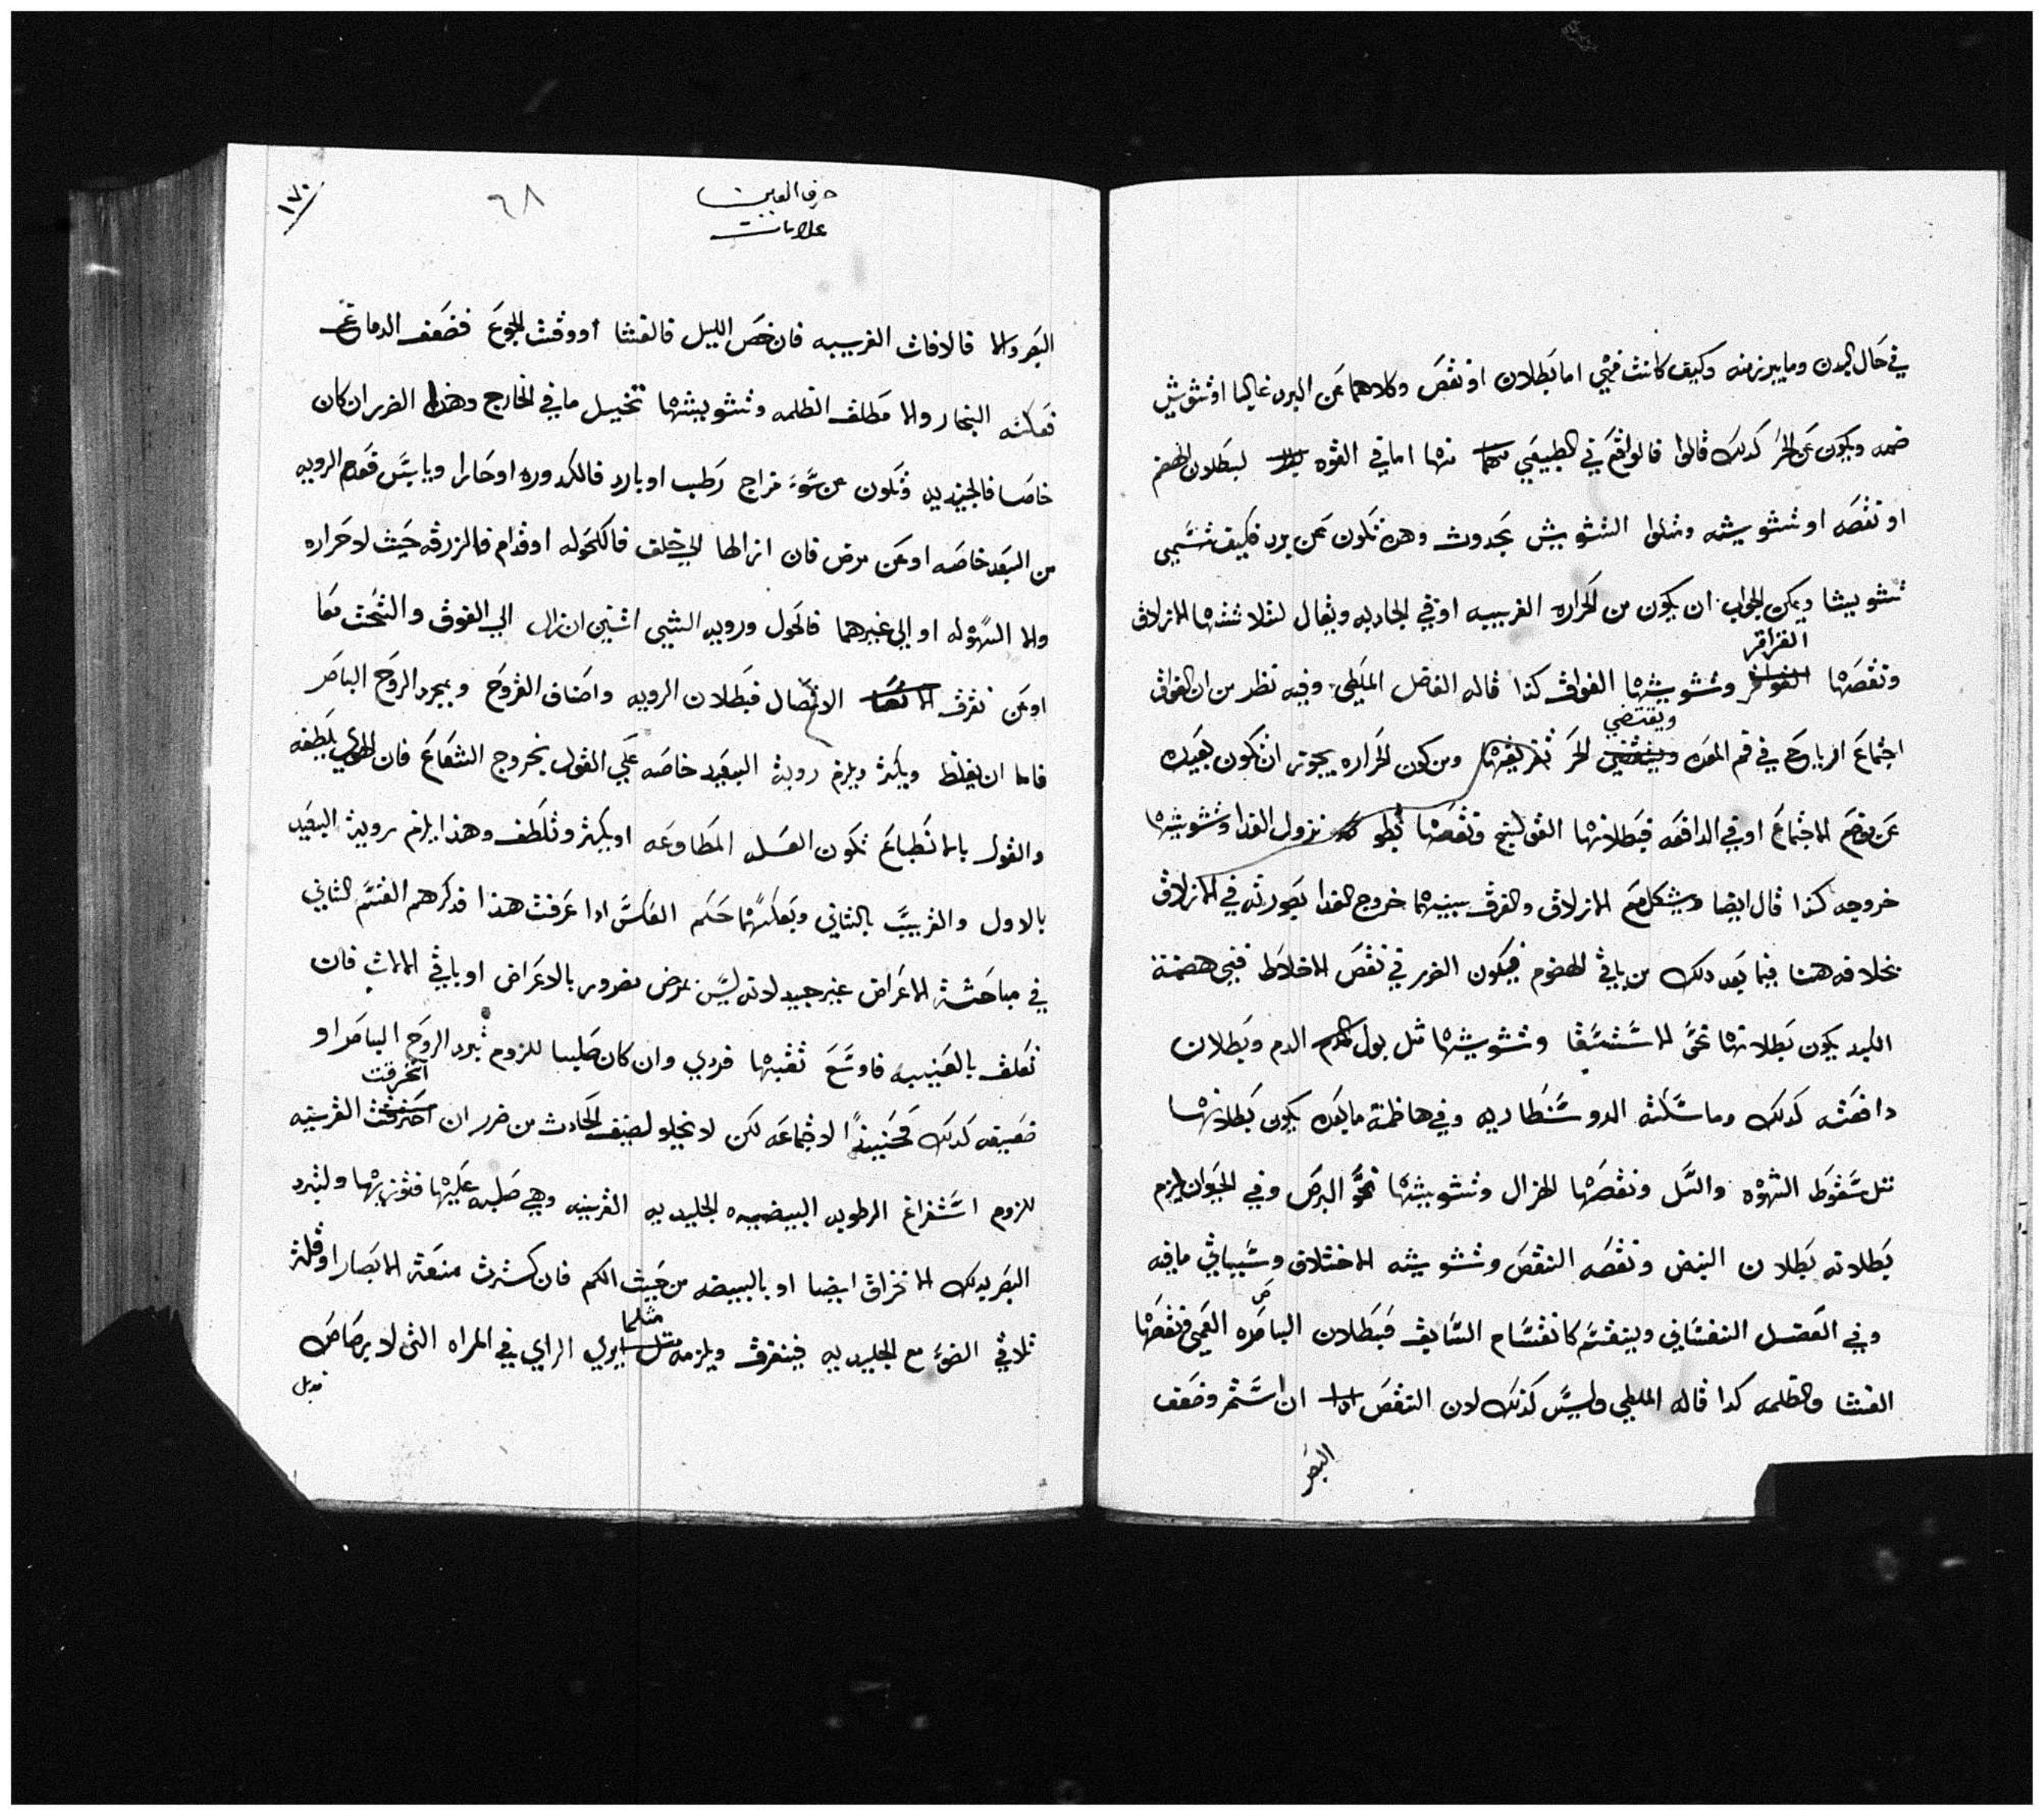 في حال البدن وما يبرز منه وكيف كانت فهي اما بطلان او نقص وكلاهما عن البرد غالبا او تشويش
ويكون عن الحر كدلك قالوا فالواقع في الطبيعي منها اما في القوه لبطلان الهضم
او نقصه او تشويشه ومثلوا التشويش بحدوث وهده تكون عن برد فكيف تسمى
تشويشا ويمكن الجواب ان يكون من الحراره الغريبه او في الجادبه ويقال لثلاثتها الانزلاق
القراقر
ونقصها وتشويشها الفواق كذا قاله الفاضل الملطي وفيه نظر من ان الفواق
ويقتضي
اجتماع الرياح في فم المعده الحر تفريقها ومن كون الحراره يجوز ان تكون بعيده
عن موضع الاجتماع او في الدافعه فبطلانها القولنج ونقصها بطو نزول الغدا وتشويشها
خروجه كذا قال ايضا ويشكل مع الانزلاق والفرق بينهما خروج الغدا بصورته في الانزلاق
بخلافه هنا فيما بعد دلك من باقي الهضوم فيكون الضرر في نقص الاخلاط ففي هضمة
الكبد يكون بطلانها نحو الاستسقا وتشويشها مثل بول الدم وبطلان
دافعته كدلك وماسكته الدوسنطاريه وفي هاظمة ما بعده يكون بطلانها
مثل سقوط الشهوه والسل ونقصها الهزال وتشويشها نحو البرص وفي الحيوانيه يلزم
بطلانه بطلان النبض ونقصه النقص وتشويشه الاختلاف وسياتي ما فيه
وفي الفضل النفساني وينقسم كانقسام السابق فبطلان الباصره العمى ونقصها
العشا والظلمه كدا قاله الملطي وليس كذلك لان النقص ان استمر وضعف
البصر
حرف العين
علامات
٦٨
١٧٠
البصر والا فالافات الغريبه فان خص الليل فالعشا او وقت الجوع فضعف الدماغ
فعكسه البخار والا مطلق الظلمه وتشويشها تخيل ما في الخارج وهذا الضرر ان كان
خاصا فالجليديه وتكون عن سوء مزاج رطب او بارد فالكدوره او حارا ويابس فعدم الرويه
من البعد خاصه او عن مرض فان ازالها الى خلف فالكحوله او قدام فالزرقه حيث لا حراره
والا السهوله او الى غيرهما فالحول ورويه الشي اثنين ان زال الى الفوق والتحت معا
او عن تفرق الاتصال فبطلان الرويه واصناف القروح وبمجرد الروح الباصر
فاما ان يغلظ ويكثر ويلزم روية البعيد خاصه على القول بخروج الشعاع فان الهوي يلطفه
والقول بالانطباع تكون العسله المطاوعه او يكثر وتلطف وهذا يلزم روية البعيد
بالاول والقريب بالثاني وبعكسهما حكم العكس ادا عرفت هذا فدكرهم القسم الثاني
في مباحثة الاعراض غير جيد لانه ليس بمرض بصرور بالاعراض او باقي الالات فان
تعلق بالعنبيه فاوسع ثقبها فردي وان كان صلبا للزوم تبدد الروح الباصر او
انخرقت
ضعيفه كدلك فحنيئذ الاجتماعه لكن لا يخلو لصيف الحادث من ضرر ان القرنيه
للزوم استفراغ الرطوبه البيضيه الجليديه القرنيه وهي صلبه عليها فتوذيها ولتبرد
البصر بدلك الانخراق ايضا او بالبيضه من حيث الكم فان كثرت منعة الابصار او قلة
مثلما
تلاقي الضوء مع الجليديه فيتفرق ويلزمه يري الراي في المراه التي لا برصاص